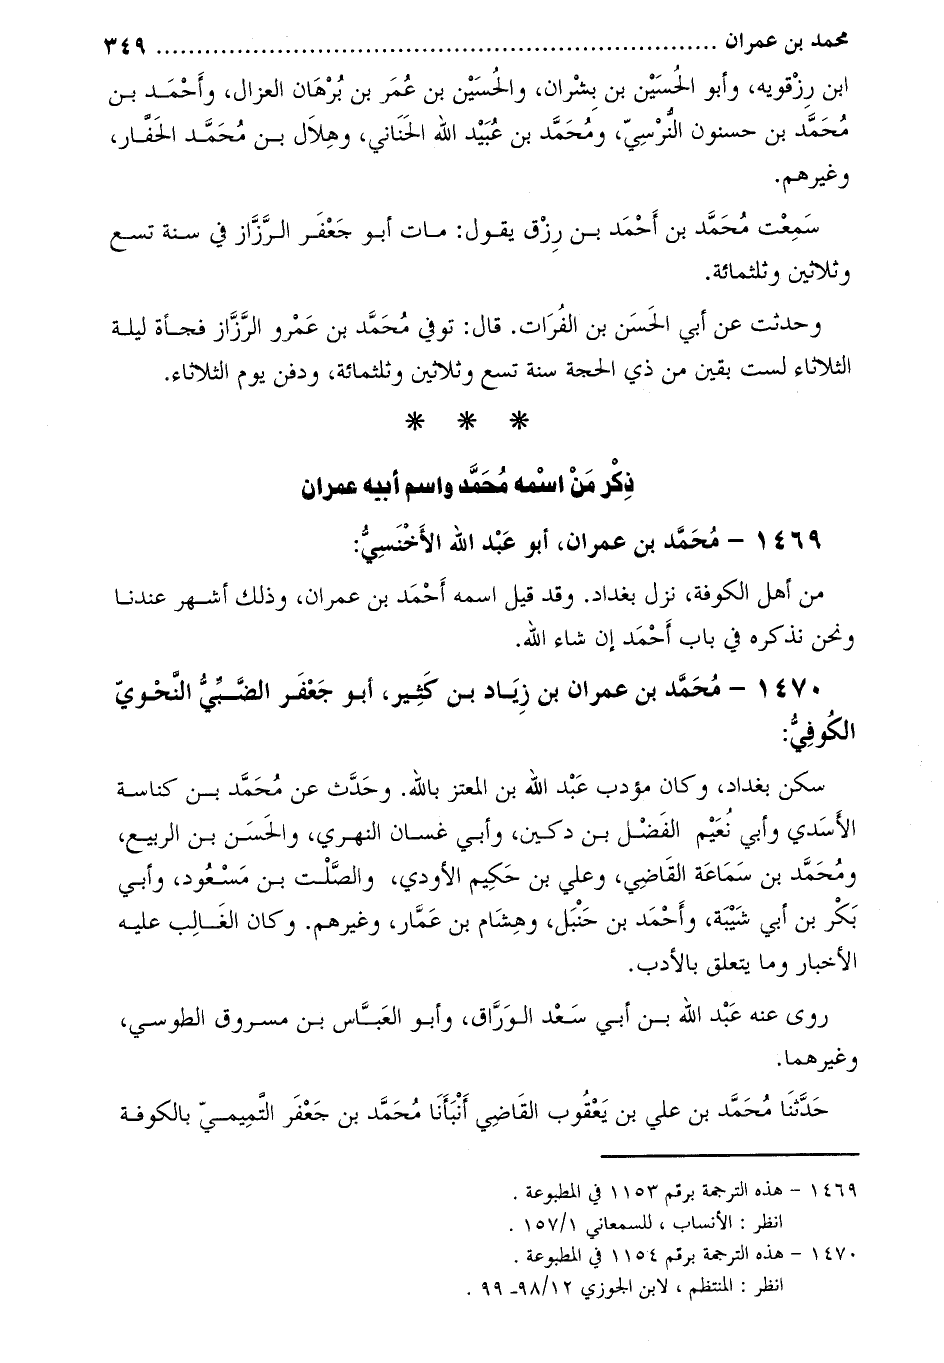 محمد بن عمران ..................................................................... ٣٤٩
ابن رِزْقويه، وأبو الحُسَيْن بن بِشْران، والحُسَيْن بن عُمَر بن بُرْهَان الغزال، وأَحْمَـد بـن
مُحَمَّد بن حسنون النُّرْسِيّ، ومُحَمَّد بن عُبَيْد الله الحَنَاني، وهِلَال بـن مُحَمَّـد الحَفَّـار،
وغيرهم.
سَمِعْت مُحَمَّد بن أَحْمَد بـن رِزْق يقـول: مـات أبـو جَعْفَـر الـرَّزَّاز في سـنة تسـع
وثلاثين وثلثمائة.
وحدثت عن أبي الحَسَن بن الفُرَات. قال: توفي مُحَمَّد بن عَمْرو الرَّزَّاز فجـأة ليلـة
الثلاثاء لست بقين من ذي الحجة سنة تسع وثلاثين وثلثمائة، ودفن يوم الثلاثاء.
* * *
ذِكْر مَنْ اسْمه مُحَمَّد واسم أبيه عمران
١٤٦٩ – مُحَمَّد بن عمران، أبو عَبْد الله الأَخْنَسِيُّ:
من أهل الكوفة، نزل بغداد. وقد قيل اسمه أَحْمَد بن عمران، وذلك أشـهر عندنـا
ونحن نذكره في باب أَحْمَد إن شاء الله.
١٤٧٠ – مُحَمَّد بن عمران بن زِيَـاد بـن كَثِـير، أبـو جَعْفَـر الضَّـبِّيُّ النَّحْـويّ
الكُوفِيُّ:
سكن بغداد، وكان مؤدب عَبْد الله بن المعتز بالله. وحَدَّث عن مُحَمَّد بـن كناسـة
الأسَدي وأبي نُعَيْم الفَضْل بـن دكـين، وأبـي غسـان النهـري، والحَسَـن بـن الربيـع،
ومُحَمَّد بن سَمَاعَة القَاضِي، وعلي بن حَكِيم الأودي، والصَّلْت بـن مَسْـعُود، وأبـي
بَكْر بن أبي شَيْبَة، وأَحْمَد بن حَنْبَل، وهِشَام بن عَمَّار، وغيرهم. وكان الغَـالِب عليـه
الأخبار وما يتعلق بالأدب.
روى عنه عَبْد الله بـن أبـي سَـعْد الـوَرَّاق، وأبـو العَبَّـاس بـن مسـروق الطوسـي،
وغيرهمـا.
حَدَّثَنَا مُحَمَّد بن علي بن يَعْقُوب القَاضِي أَنْبَأَنَا مُحَمَّد بن جَعْفَر التَّمِيمـيّ بالكوفـة
١٤٦٩ – هذه الترجمة برقم ١١٥٣ في المطبوعة .
انظر : الأنساب ، للسمعاني ١٥٧/١ .
١٤٧٠ – هذه الترجمة برقم ١١٥٤ في المطبوعة .
انظر : المنتظم ، لابن الجوزي ٩٨/١٢ـ ٩٩ .